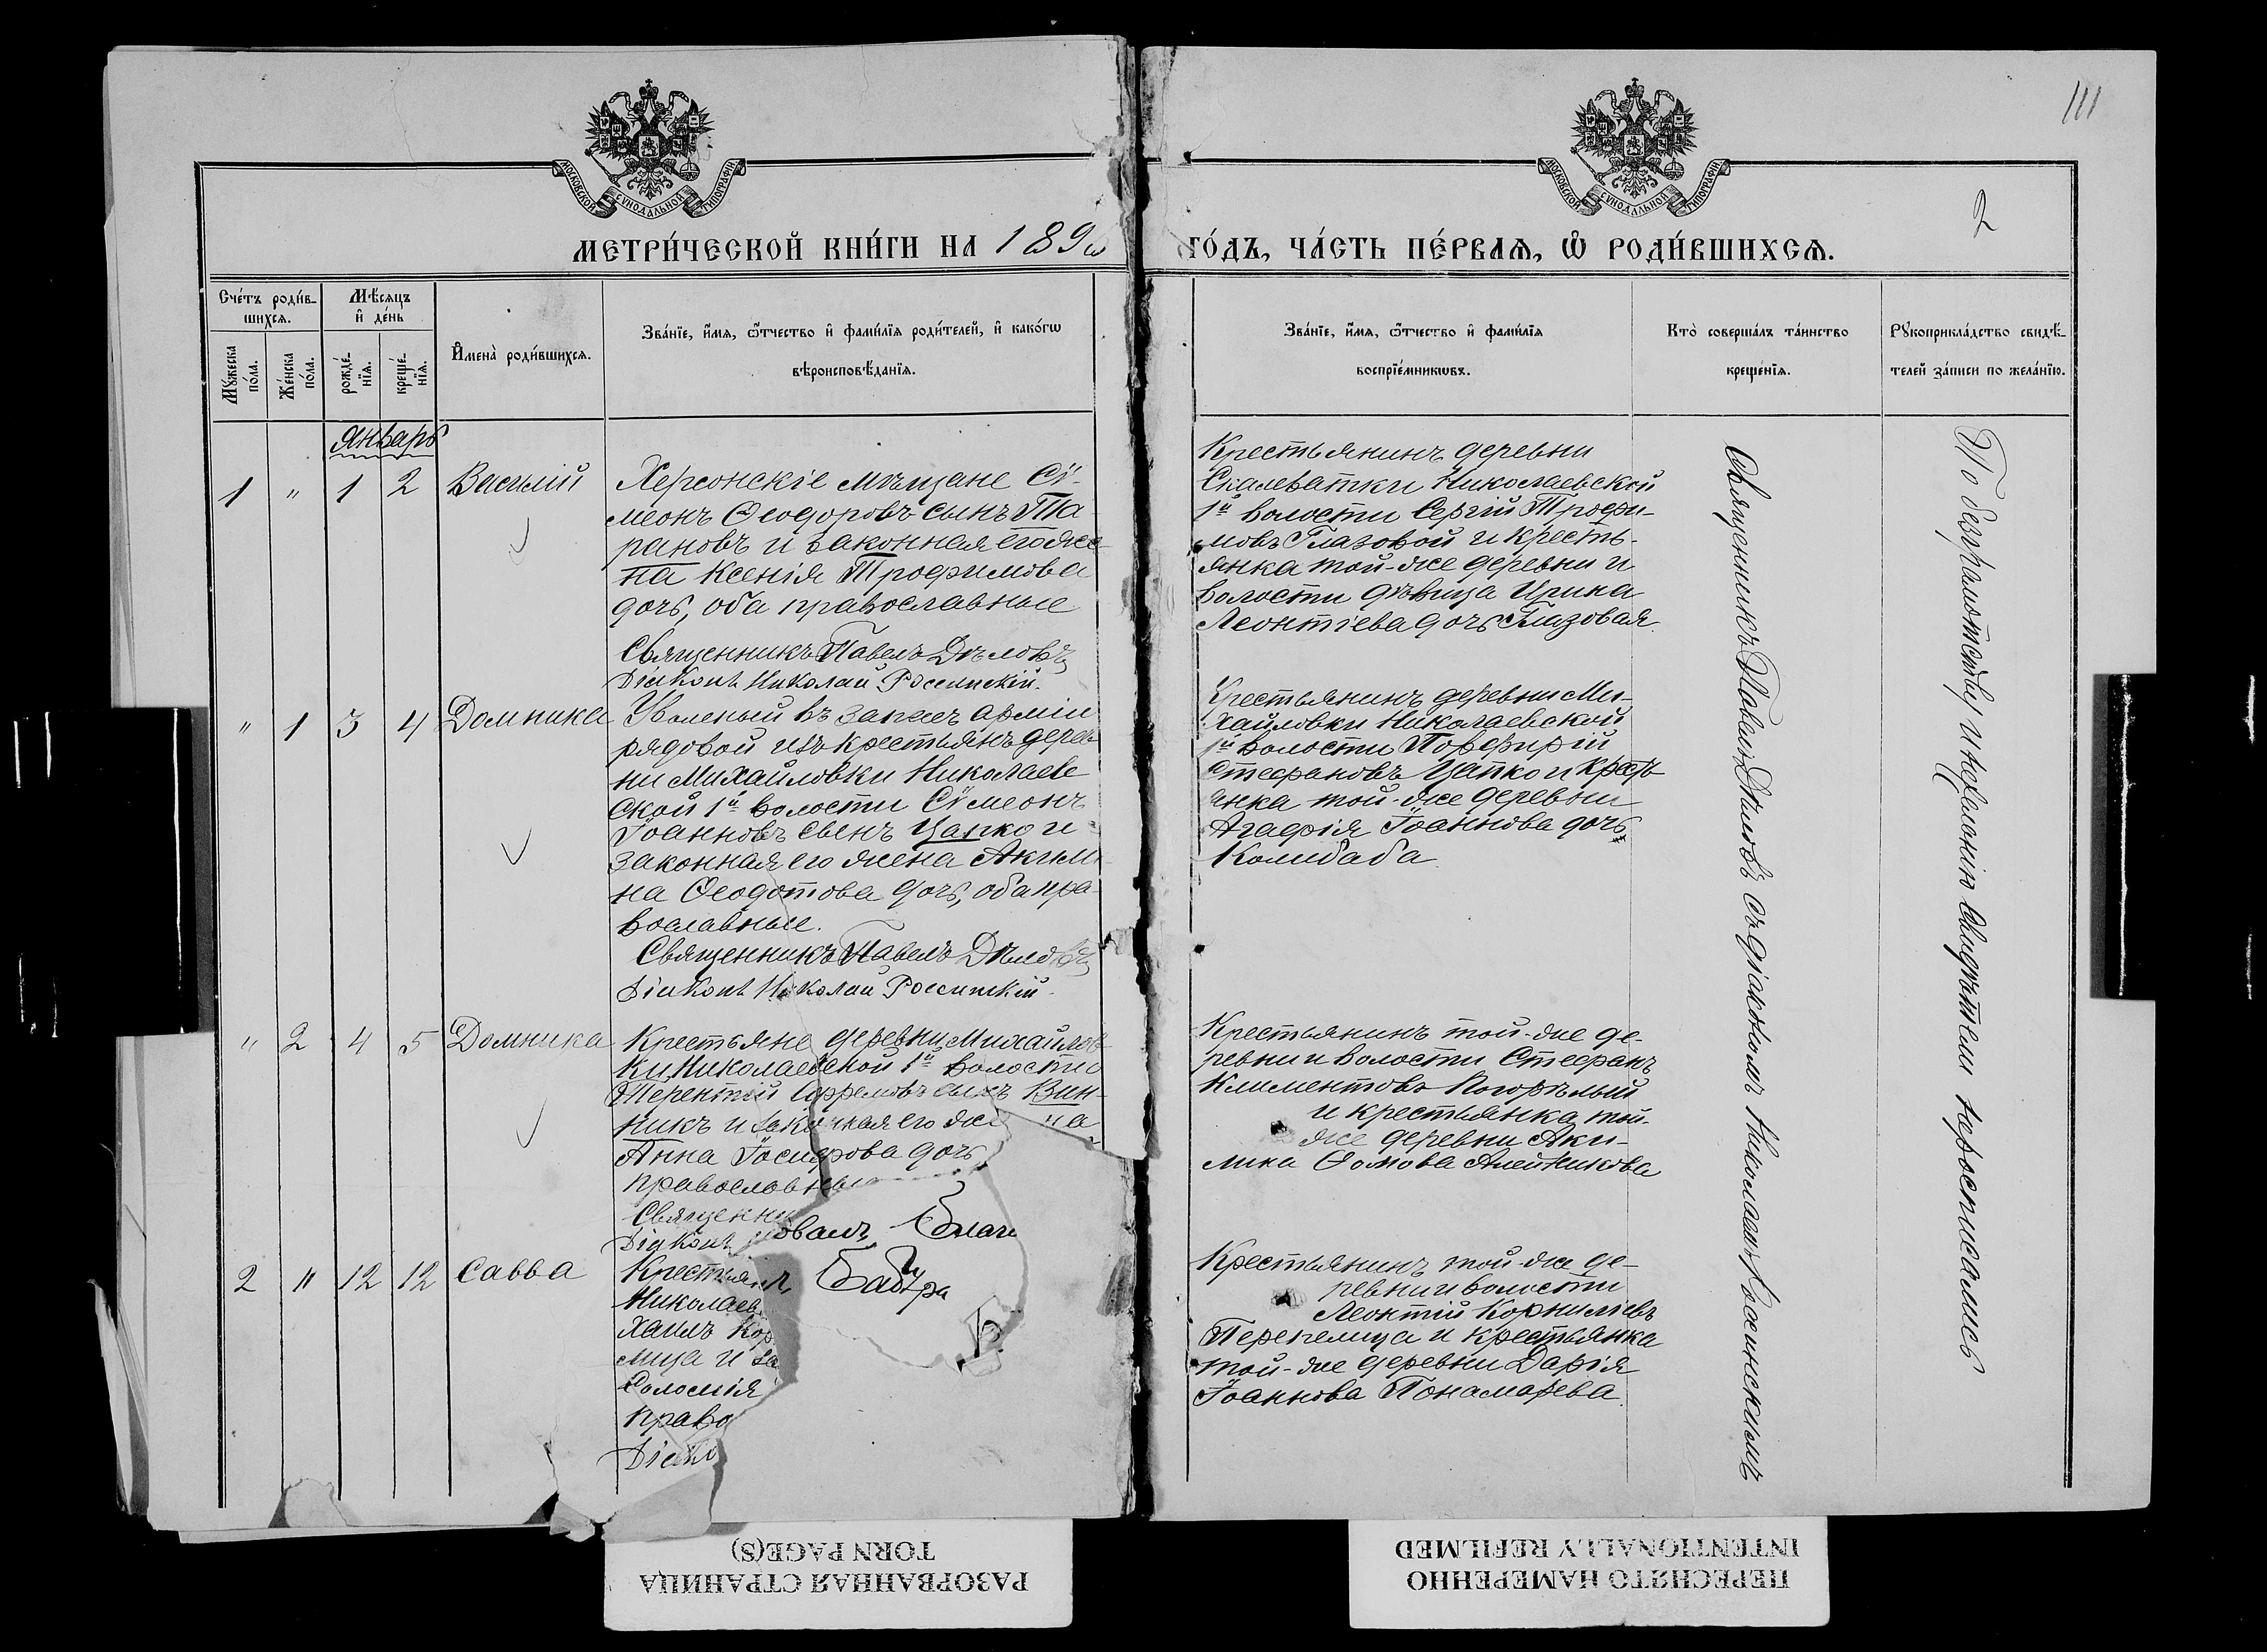 111
2
МОСКОВСКОЙ СУНОДАЛЬНОЙ ТИПОГРАФІИ
МОСКОВСКОЙ СУНОДАЛЬНОЙ ТИПОГРАФІИ
МЕТРИ́ЧЕСКОЙ КНИ́ГИ НА 189
ГО́ДЪ, ЧА́СТЬ ПЕ́РВАѦ, Ѡ РОДИ́ВШИХСѦ.
Сче́тъ роди́в-
шихсѧ.
Мѣ́сѧцъ
и҆ де́нь
Мꙋ́жеска
по́ла.
Же́нска
по́ла.
рожде́-
нїѧ.
креще́-
нїѧ.
И҆мена̀ роди́вшихсѧ.
Зва́нїе, и҆́мѧ, ѻ҆́тчество и҆ фами́лїѧ роди́телей, и҆ како́гѡ
вѣроисповѣ́данїѧ.
Зва́нїе, и҆́мѧ, ѻ҆́тчество и҆ фами́лїѧ
воспрїе́мникѡвъ.
Кто̀ соверша́лъ та́инство
креще́нїѧ.
Рꙋкоприкла́дство свидѣ́-
телей за́писи по жела́нїю.
Январь
1 " 1 2 Василій
Херсонскіе мѣщане Сѵ-
меонъ Ѳеодоровъ сынъ Та-
рановъ и законная его же-
на Ксенія Трофимова
дочь, оба православные
Священникъ Павелъ Дѣловъ
Діаконъ Николай Россинскій.
Крестьянинъ деревни
Скалеватки Николаевской
1й волости Сергій Трофи-
мовъ Глазовой и кресть-
янка той-же деревни и
волости дѣвица Ирина
Леонтіева дочь Глазовая.
" 1 3 4 Домника
Уволеный въ запасъ арміи
рядовой изъ крестьянъ дерев
ни Михайловки Николаев
ской 1й волости Сѵмеонъ
Іоанновъ сынъ Цапко и
законная его жена Акили
на Ѳеодотова дочь, оба пра-
вославные.
Священникъ Павелъ Дѣловъ
Діаконъ Николай Россинскій.
Крестьянинъ деревни Ми-
хайловки Николаевской
1й волости Порфирій
Стефановъ Цапко и кресть
янка той-же деревни
Агафія Іоаннова дочь
Колибаба
" 2 4 5 Домника
Крестьяне деревни Михайлов
ки Николаевской 1й волости
Терентій Ефремовъ сынъ Вин-
никъ и законная его же на
Анна Іосифова дочь
православны
Священни
Діаконъ
Крестьянинъ той-же де-
ревни и волости Стефанъ
Климентовъ Погорѣлый
и крестьянка той-
же деревни Аки-
лина Ѳомова Алейникова
2 " 12 12 Савва
Крестьян
Николаев
хаилъ Кор
лица и за
Соломія
право
Діако
Крестьянинъ той-же де-
ревни и волости
Леонтій Корниліевъ
Перепелица и крестьянка
той-же деревни Дарія
Іоаннова Понамарева.
Священникъ Павелъ Дѣловъ съ діакономъ Николаемъ Россинскимъ
По безграмотству и нежеланію свидѣтели неросписались
РАЗОРВАННАЯ СТРАНИЦА
TORN PAGE(S)
ПЕРЕСНЯТО НАМЕРЕННО
INTENTIONALLY REFILMED